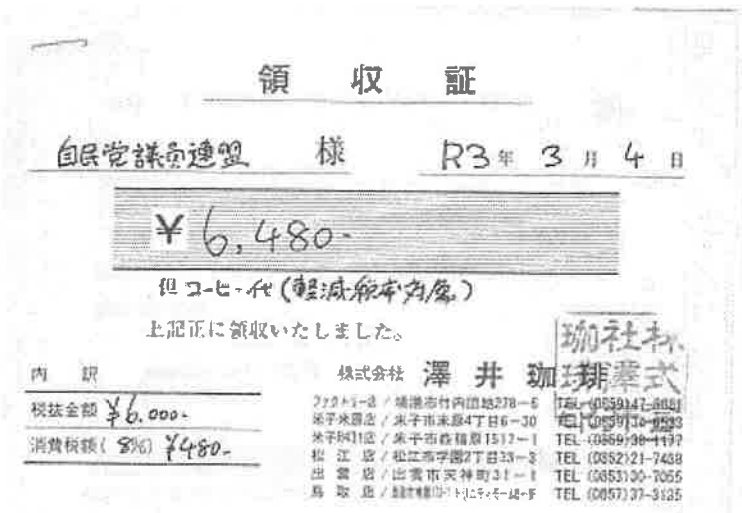 領 収 証
自民党議員連盟 様 R3年 3月 4日
¥6,480-
但 コーヒー代 (軽減税率対象)
上記正に領収いたしました。
内 訳
税抜金額 ¥6,000-
消費税額( 8%) ¥480-
株式会社 澤井珈琲
ファクトリー店/境港市竹内団地278-6 TEL (0859)47-
米子米原店/米子市米原4丁目6-30 TEL (0859)
米子 店/米子市 1512-1 TEL (0859)38-
松 江 店/松江市学園2丁目33-3 TEL (0852)21-7438
出 雲 店/出雲市天神町31-1 TEL (0853)30-7055
鳥 取 店/ TEL (0857)37-3135